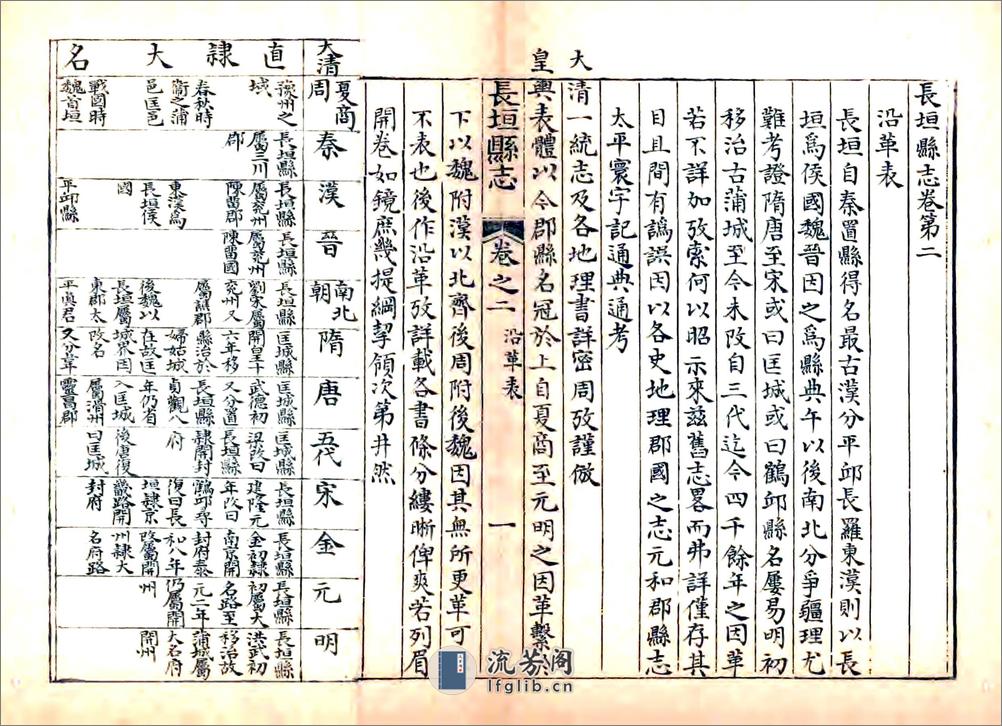 長垣縣志卷第二
沿革表
長垣自秦置縣得名最古漢分平邱長羅東漢則以長
垣爲侯國魏晉因之爲縣典午以後南北分爭疆理尤
難考證隋唐至宋或曰匡城或曰鶴邱縣名屢易明初
移治古蒲城至今未改自三代迄今四千餘年之因革
若不詳加攷索何以昭示來兹舊志畧而弗詳僅存其
目且間有譌誤因以各史地理郡國之志元和郡縣志
太平寰宇記通典通考
大
清一統志及各地理書詳密周攷謹倣
皇輿表體以今郡縣名冠於上自夏商至元明之因革繫於
長垣縣志 卷之二 沿革表 一
下以魏附漢以北齊後周附後魏因其無所更革可
不表也後作沿革攷詳載各書條分縷晰俾爽若列眉
開卷如鏡庶幾提綱挈領次第井然
大清 夏商周 秦 漢 晉 南北朝 隋 唐 五代 宋 金 元 明
直隸大名
豫州之
城
春秋時
衞之蒲
邑匡邑
戰國時
魏首垣
長垣縣
屬三川
郡
長垣縣
屬兗州
陳留郡
東漢爲
長垣侯
國
平邱縣
長垣縣
屬兗州
陳留國
長垣縣
劉宋屬
兗州又
屬譙郡
後魏以
長垣屬
東郡太
平眞君
匡城縣
開皇十
六年移
縣治於
婦姑城
在故匡
城界因
改名
又分韋
匡城縣
武德初
又分置
長垣縣
貞觀八
年仍省
入匡城
屬滑州
靈昌郡
匡城縣
梁改曰
長垣縣
隸開封
府
後唐復
曰匡城
長垣縣
建隆元
年改曰
鶴邱尋
復曰長
垣隸京
畿路開
封府
長垣縣
金初隸
南京開
封府泰
和八年
改屬開
州隸大
名府路
長垣縣
初屬大
名路至
元二年
仍屬開
州
長垣縣
洪武初
移治故
蒲城屬
大名府
開州
流芳阁
lfglib.cn